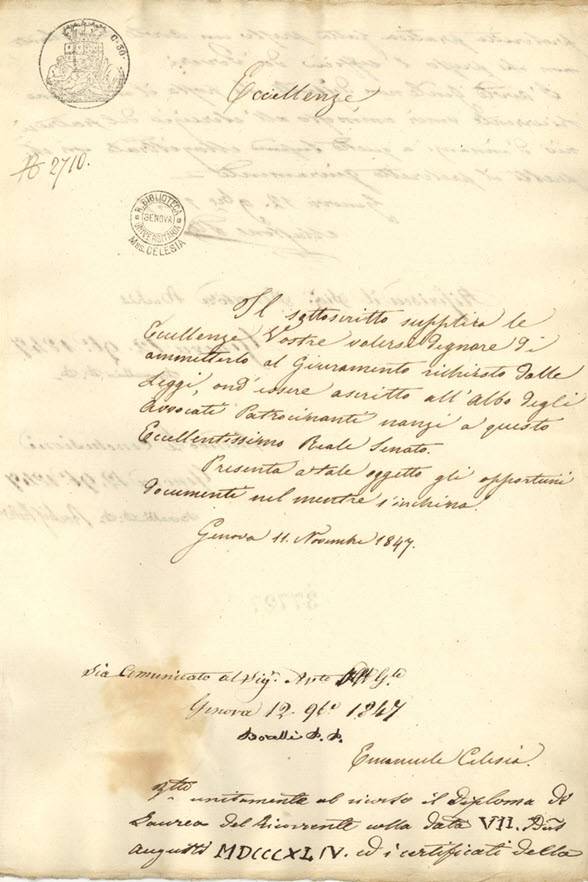 C. 50.
Eccellenze
No 2710.
R. BIBLIOTECA UNIVERSITARIA
GENOVA
Mss. CELESIA
Il sottoscritto supplica le
Eccellenze Vostre volersi degnare di
ammetterlo al Giuramento richiesto dalle
Leggi, ond'essere ascritto all'Albo degli
Avvocati Patrocinanti nanzi a questo
Eccellentissimo Reale Senato.
Presenta a tale oggetto gli opportuni
documenti nel mentre s'inchina.
Genova 11. Novembre 1847.
Sia Comunicato al Sig.r Avvto Gle
Genova 12 9bre 1847
Emanuele Celesia.
unitamente al ricorso il Diploma di
Laurea del Ricorrente colla data VII.
Augusti MDCCCXLIV. ed i certificati della